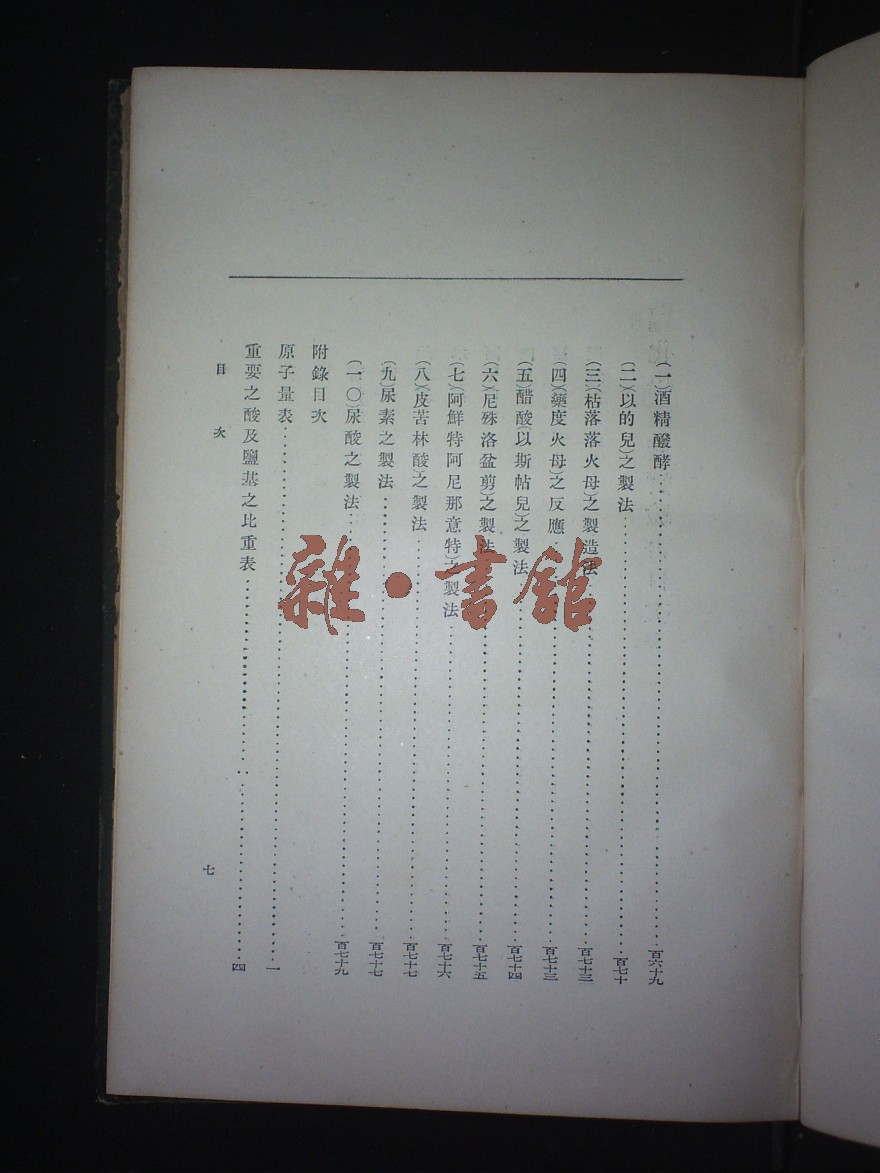 (一)酒精醱酵……百六十九
(二)(以的兒)之製法……百七十
(三)(枯落落火母)之製造法……百七十三
(四)(藥度火母)之反應……百七十三
(五)醋酸(以斯帖兒)之製法……百七十四
(六)(尼殊洛盆剪)之製法……百七十五
(七)(阿鮮特阿尼那意特)之製法……百七十六
(八)(皮苦林酸)之製法……百七十七
(九)尿素之製法……百七十七
(一〇)尿酸之製法……百七十九
附錄目次
原子量表……一
重要之酸及鹽基之比重表……四
目次
七
雜·書舘